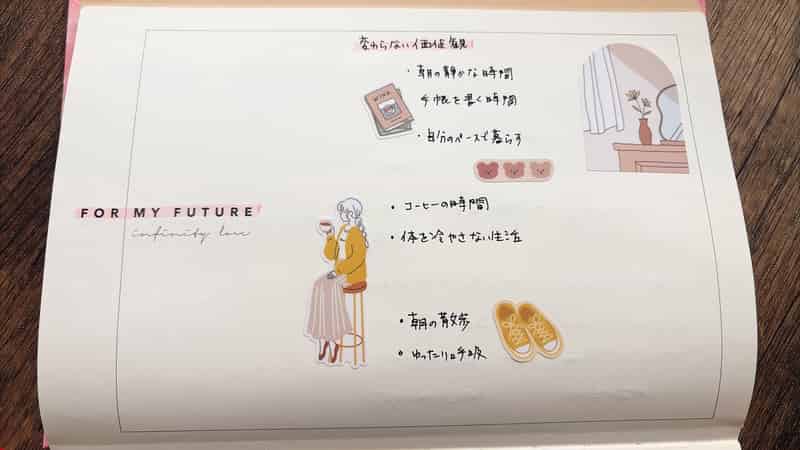 変わらない価値観
・朝の静かな時間
手帳を書く時間
・自分のペースで暮らす
FOR MY FUTURE
infinity love
・コーヒーの時間
・体を冷やさない生活
・朝の散歩
・ゆったり呼吸